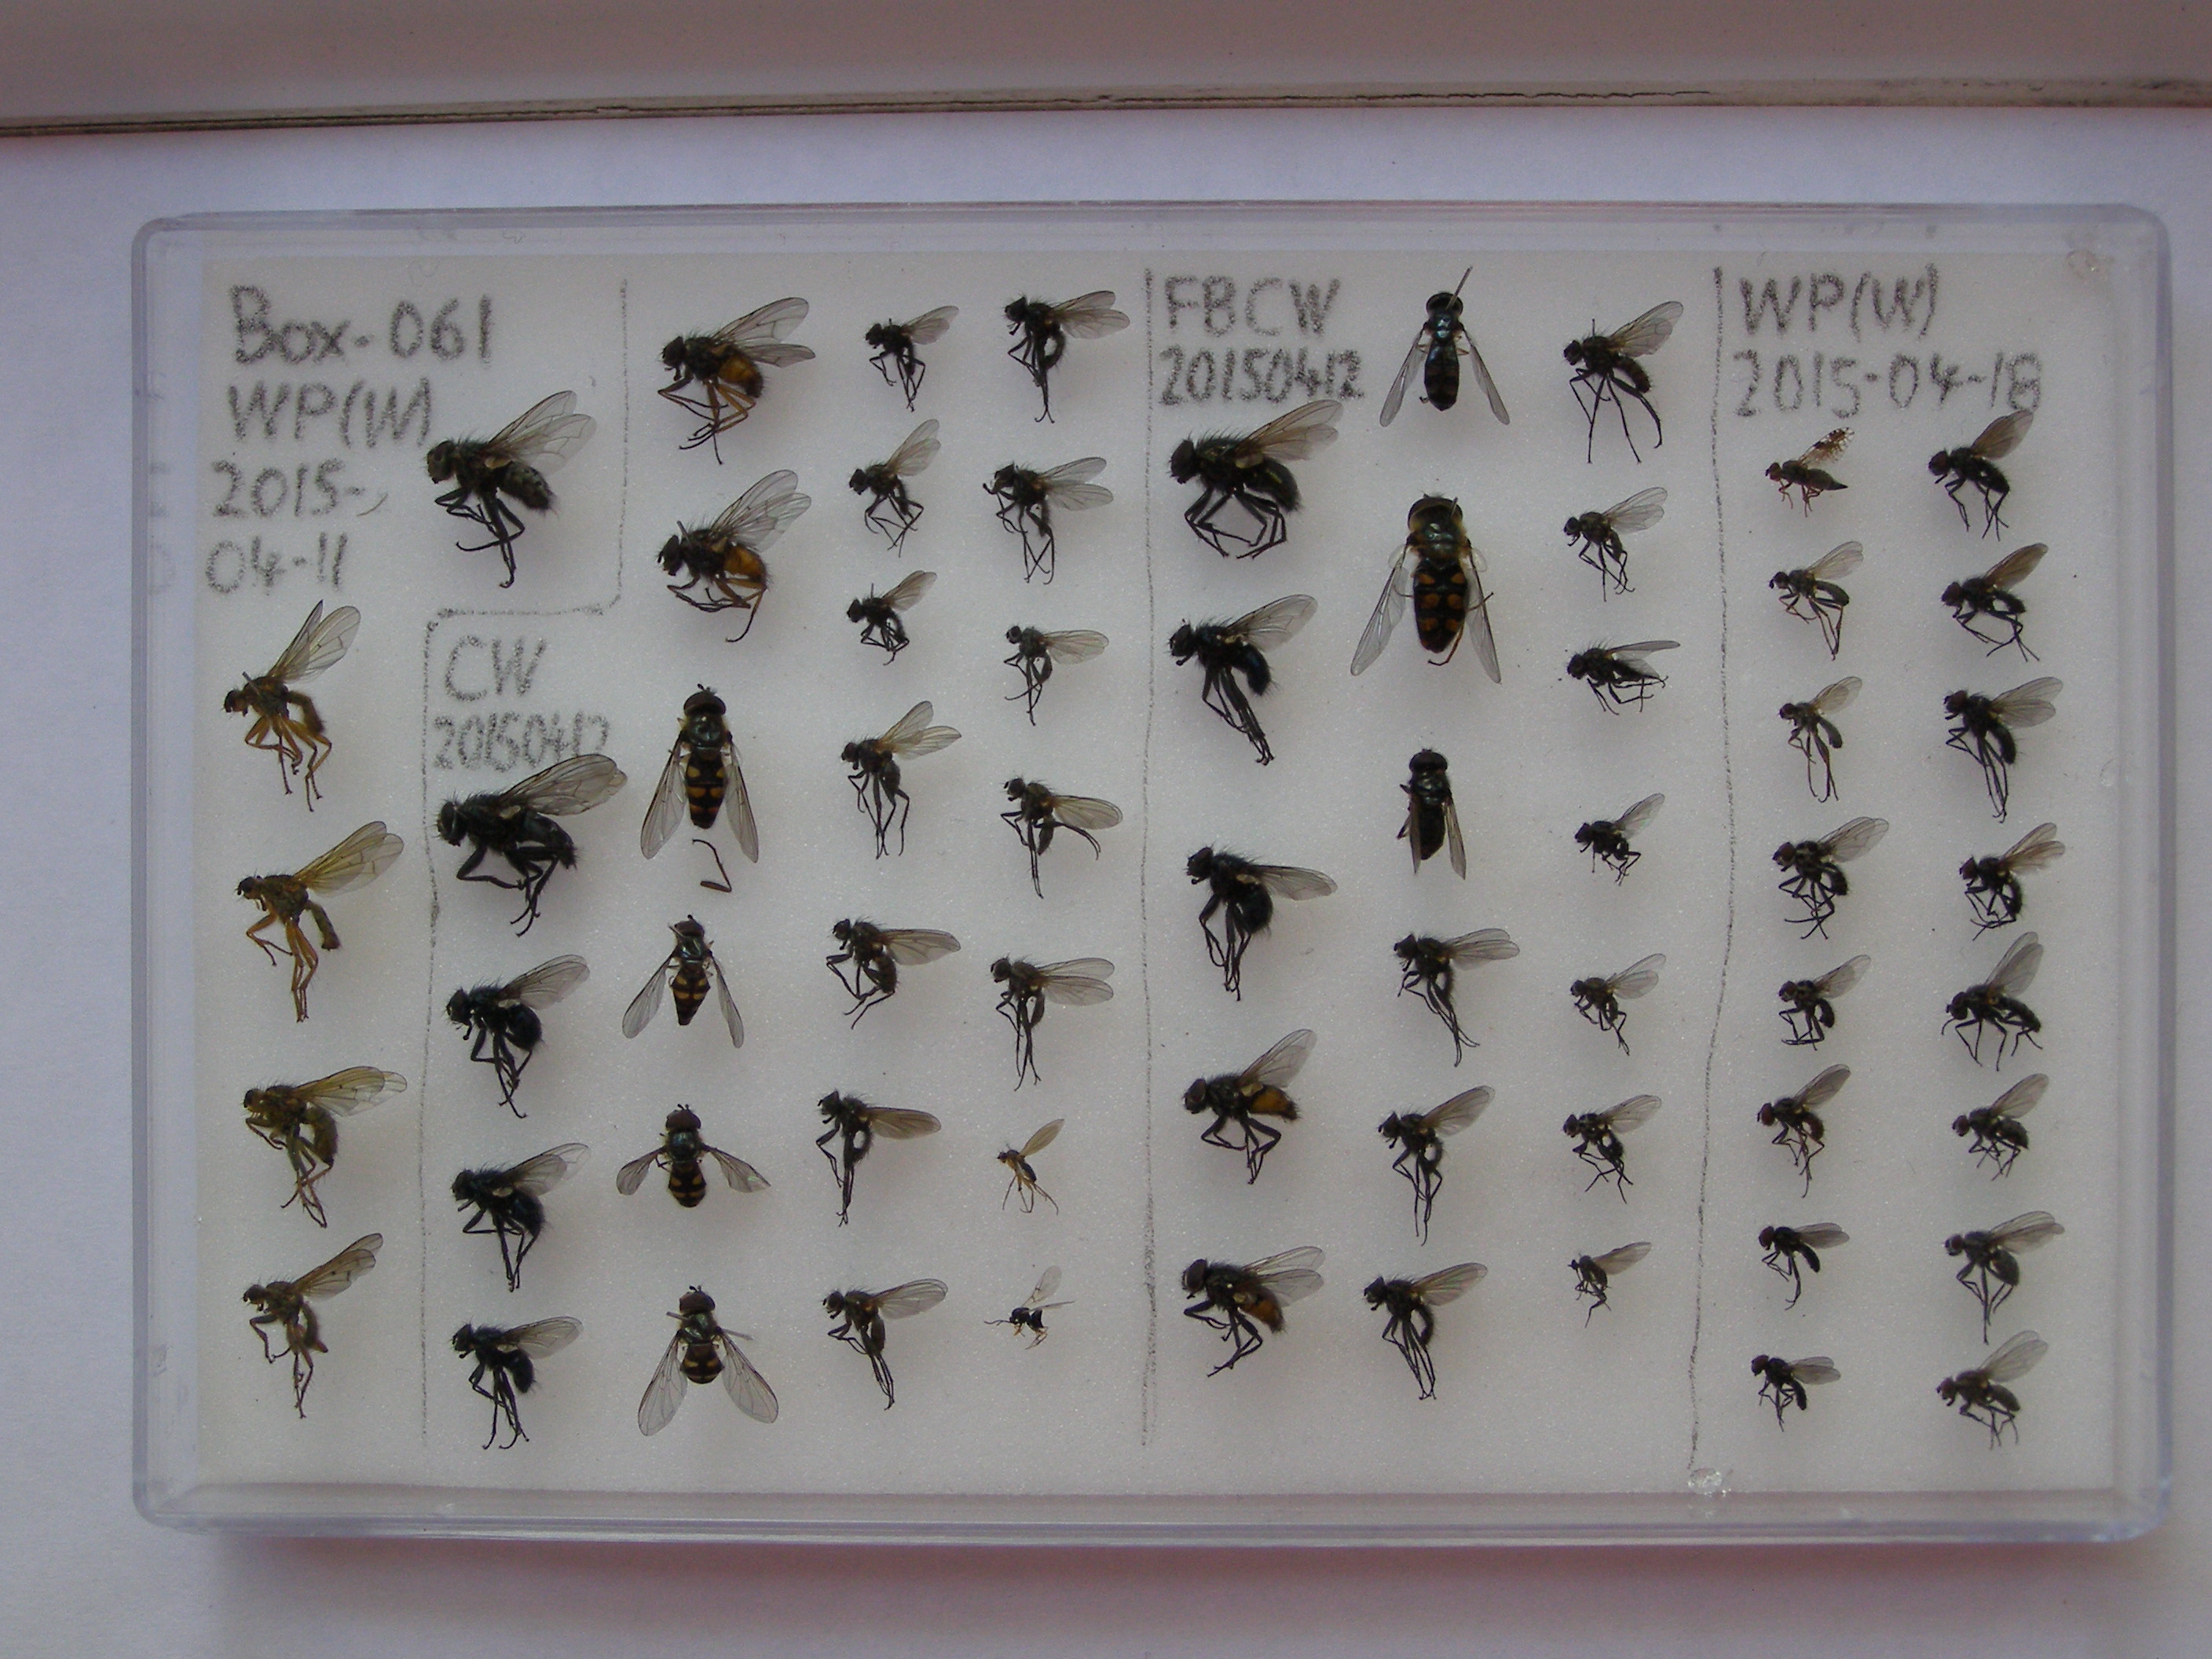 Box-061
WP(W)
2015-
04-11
CW
20150412
FBCW
20150412
WP(W)
2015-04-18